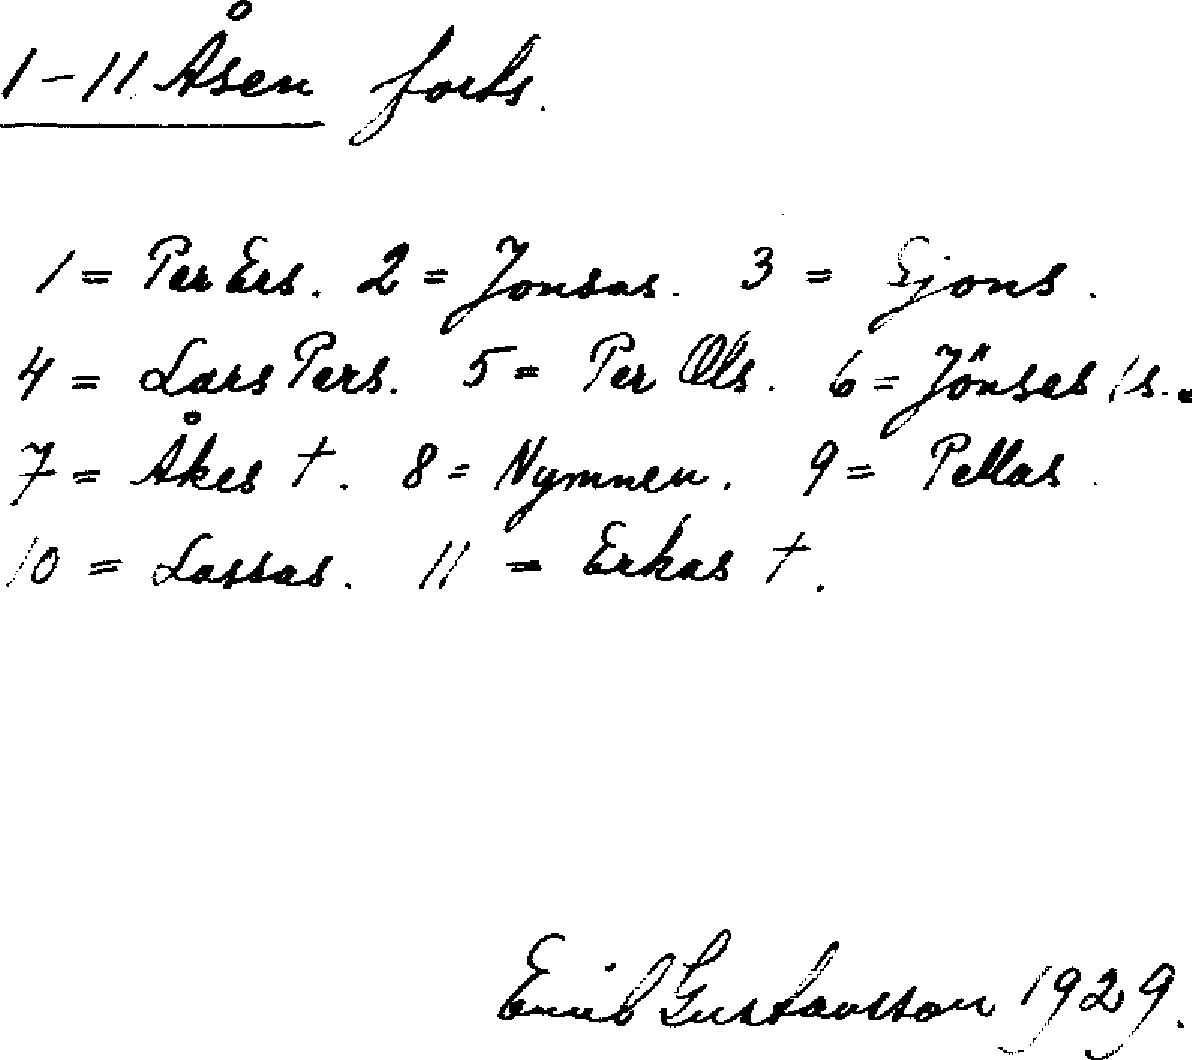 1-11 Åsen forts.
1 = Per Ers. 2 = Jonsas. 3 = Ejons.
4 = Lars Pers. 5 = Per Ols. 6 = Jönses
7 = Åkes †. 8 = Nymnen. 9 = Pellas.
10 = Lassas. 11 = Erkas †.
Emil Gustavsson 1929.